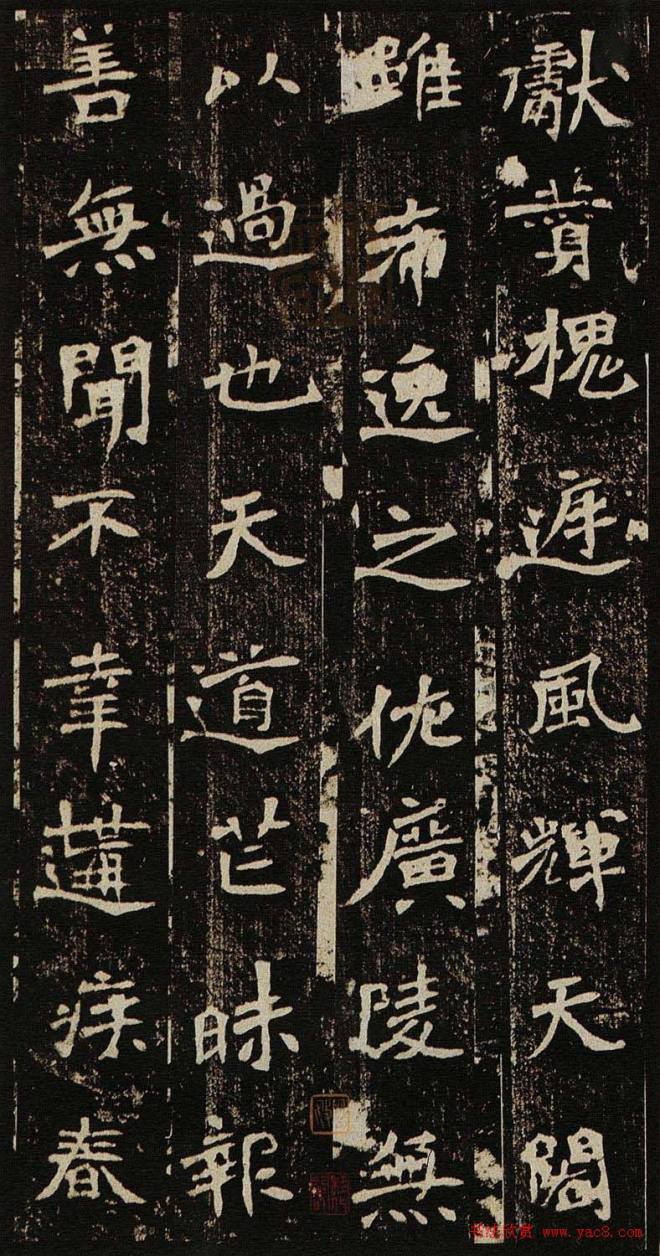 獻賛槐風輝天閣
雖逸之廣陵無
以過也天道芒昧報
善無聞不幸遘疾春
书法欣赏 www.yac8.com